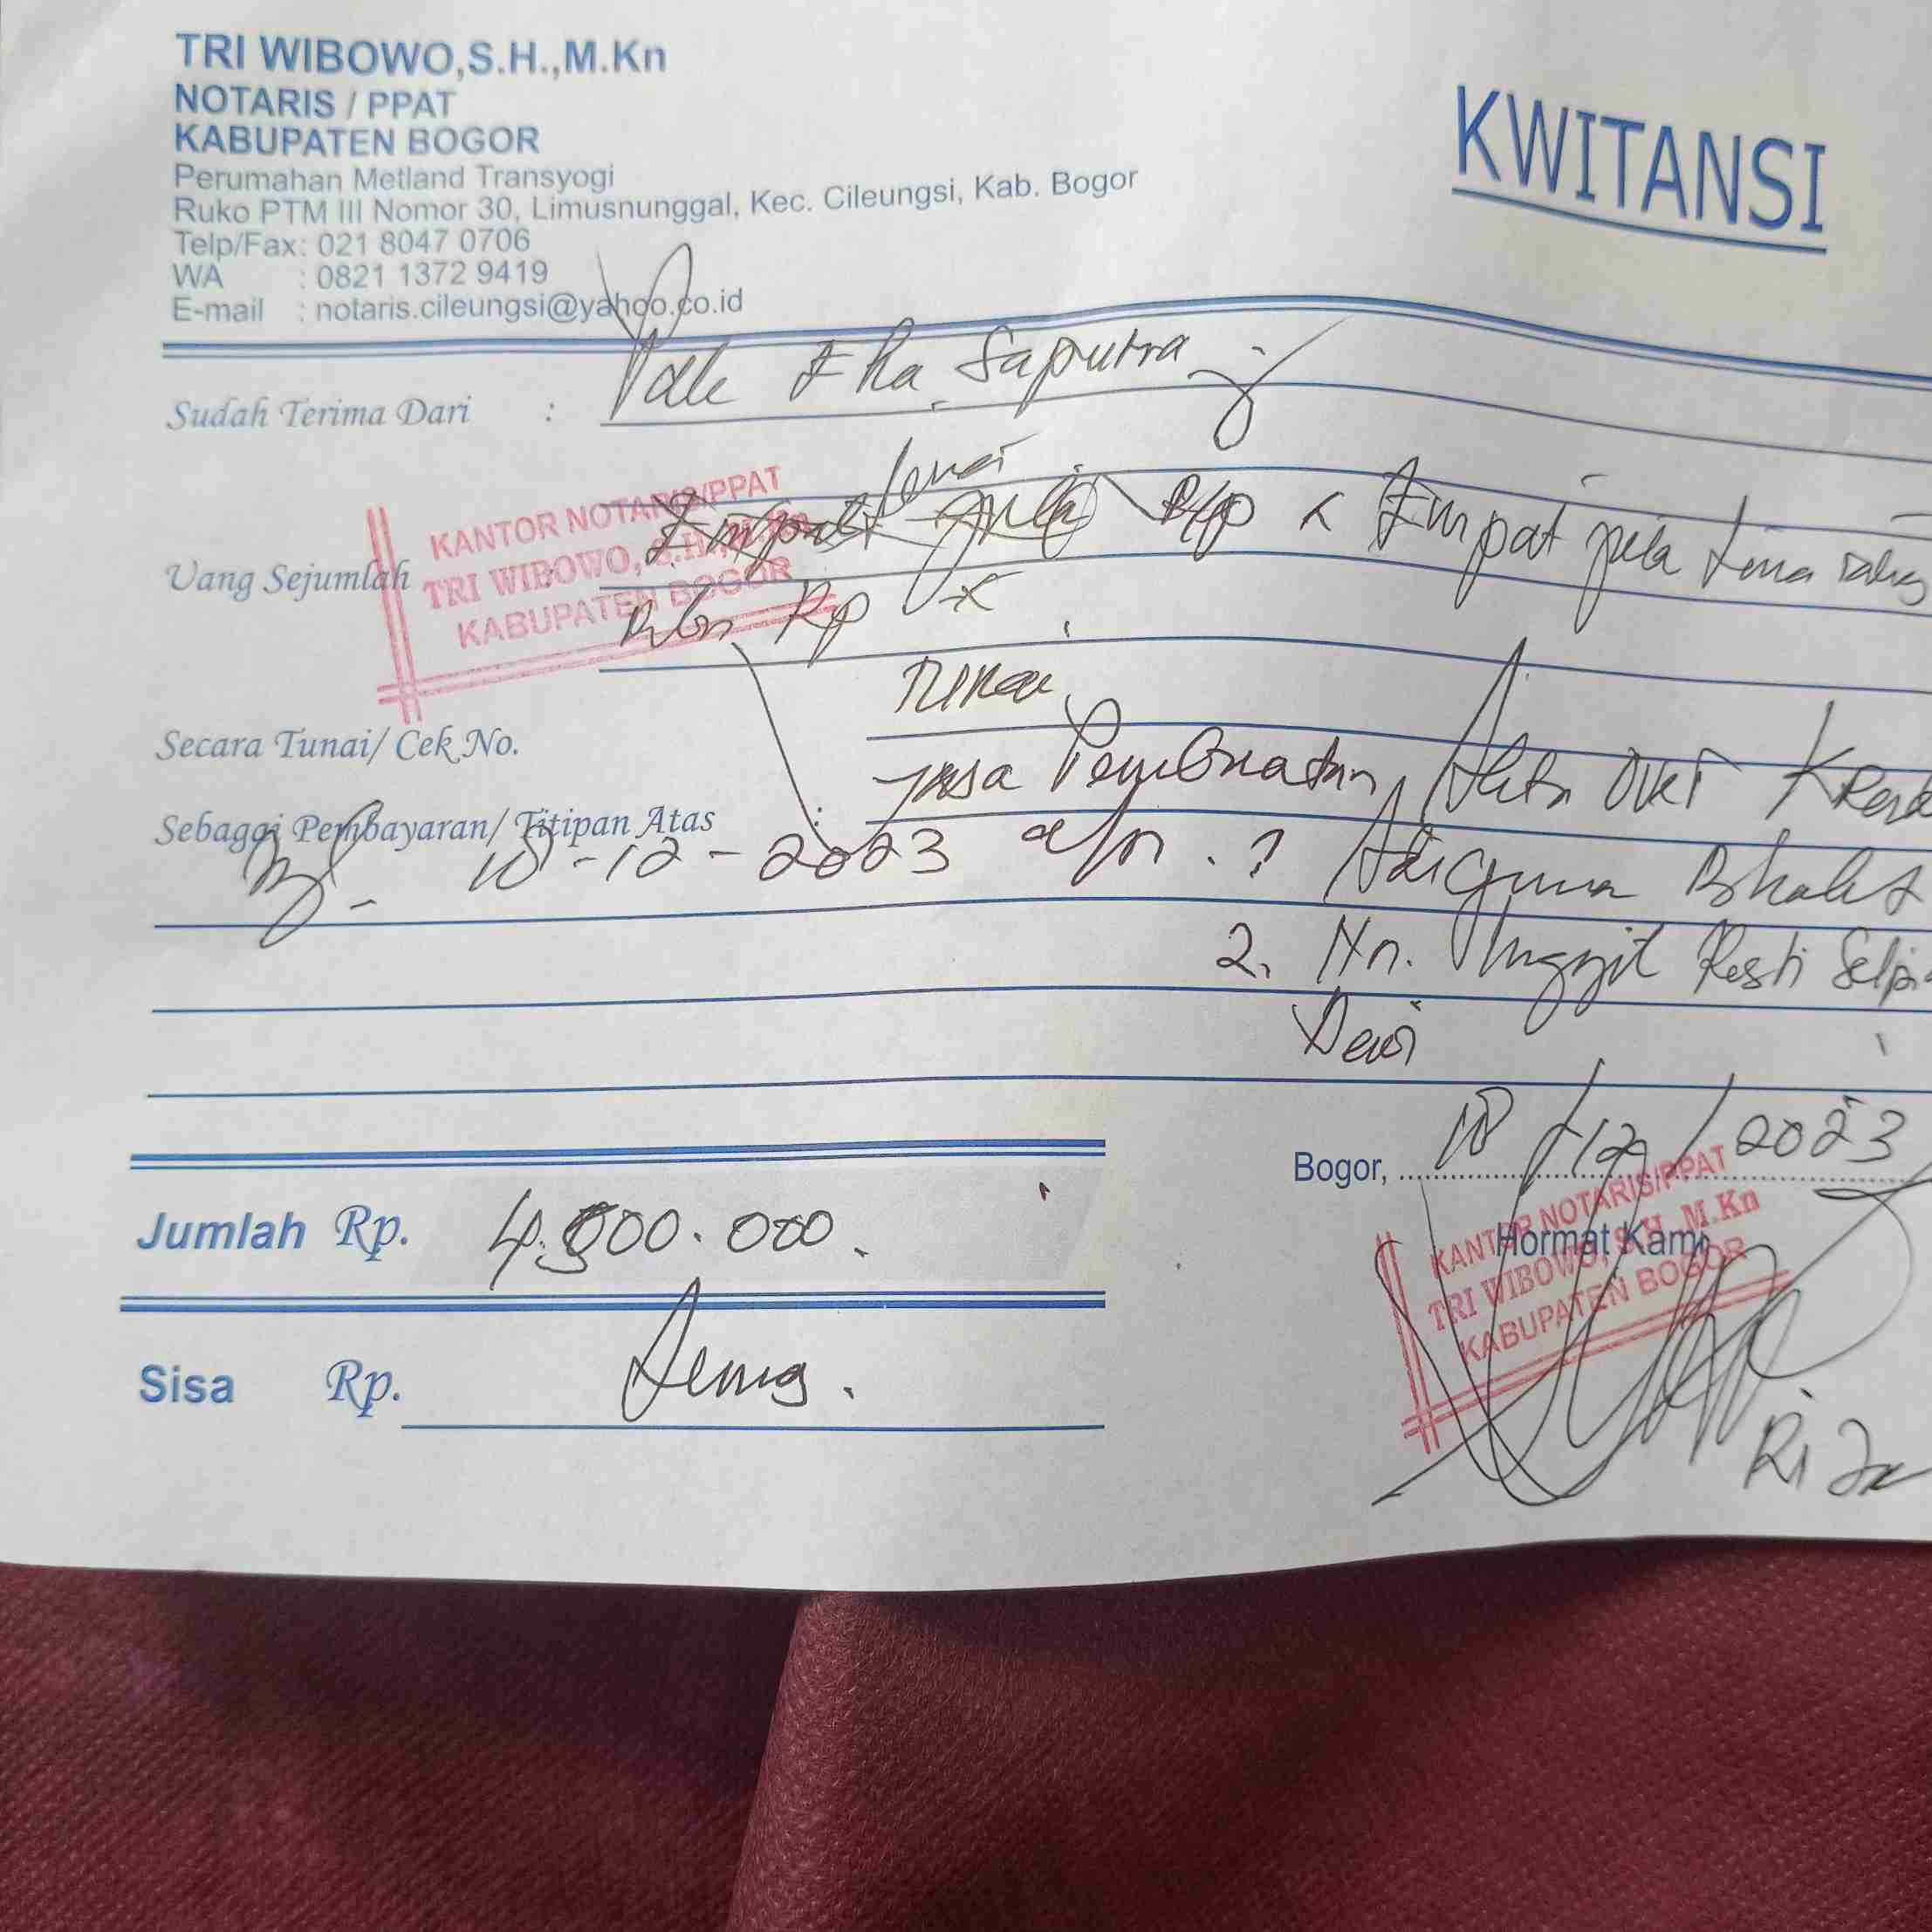 TRI WIBOWO,S.H.,M.Kn
NOTARIS / PPAT
KABUPATEN BOGOR
Perumahan Metland Transyogi
Ruko PTM III Nomor 30, Limusnunggal, Kec. Cileungsi, Kab. Bogor
Telp/Fax: 021 8047 0706
WA : 0821 1372 9419
E-mail : notaris.cileungsi@yahoo.co.id
KWITANSI
Sudah Terima Dari : Eka Saputra
KANTOR NOTARIS/PPAT
TRI WIBOWO, S.H., M.Kn
KABUPATEN BOGOR
Uang Sejumlah Empat Rp Empat juta Lima
Rp
Secara Tunai/ Cek No. Tunai
Sebagai Pembayaran/ Titipan Atas : Jasa Pembuatan Akta Over
18-12-2023 a/n . 1 Adiguna
2. Nn. Anggit Resti
Dewi
Bogor, 18/12/2023
Jumlah Rp. 4.500.000.
Hormat Kami
KANTOR NOTARIS/PPAT
TRI WIBOWO, S.H., M.Kn
KABUPATEN BOGOR
Sisa Rp.